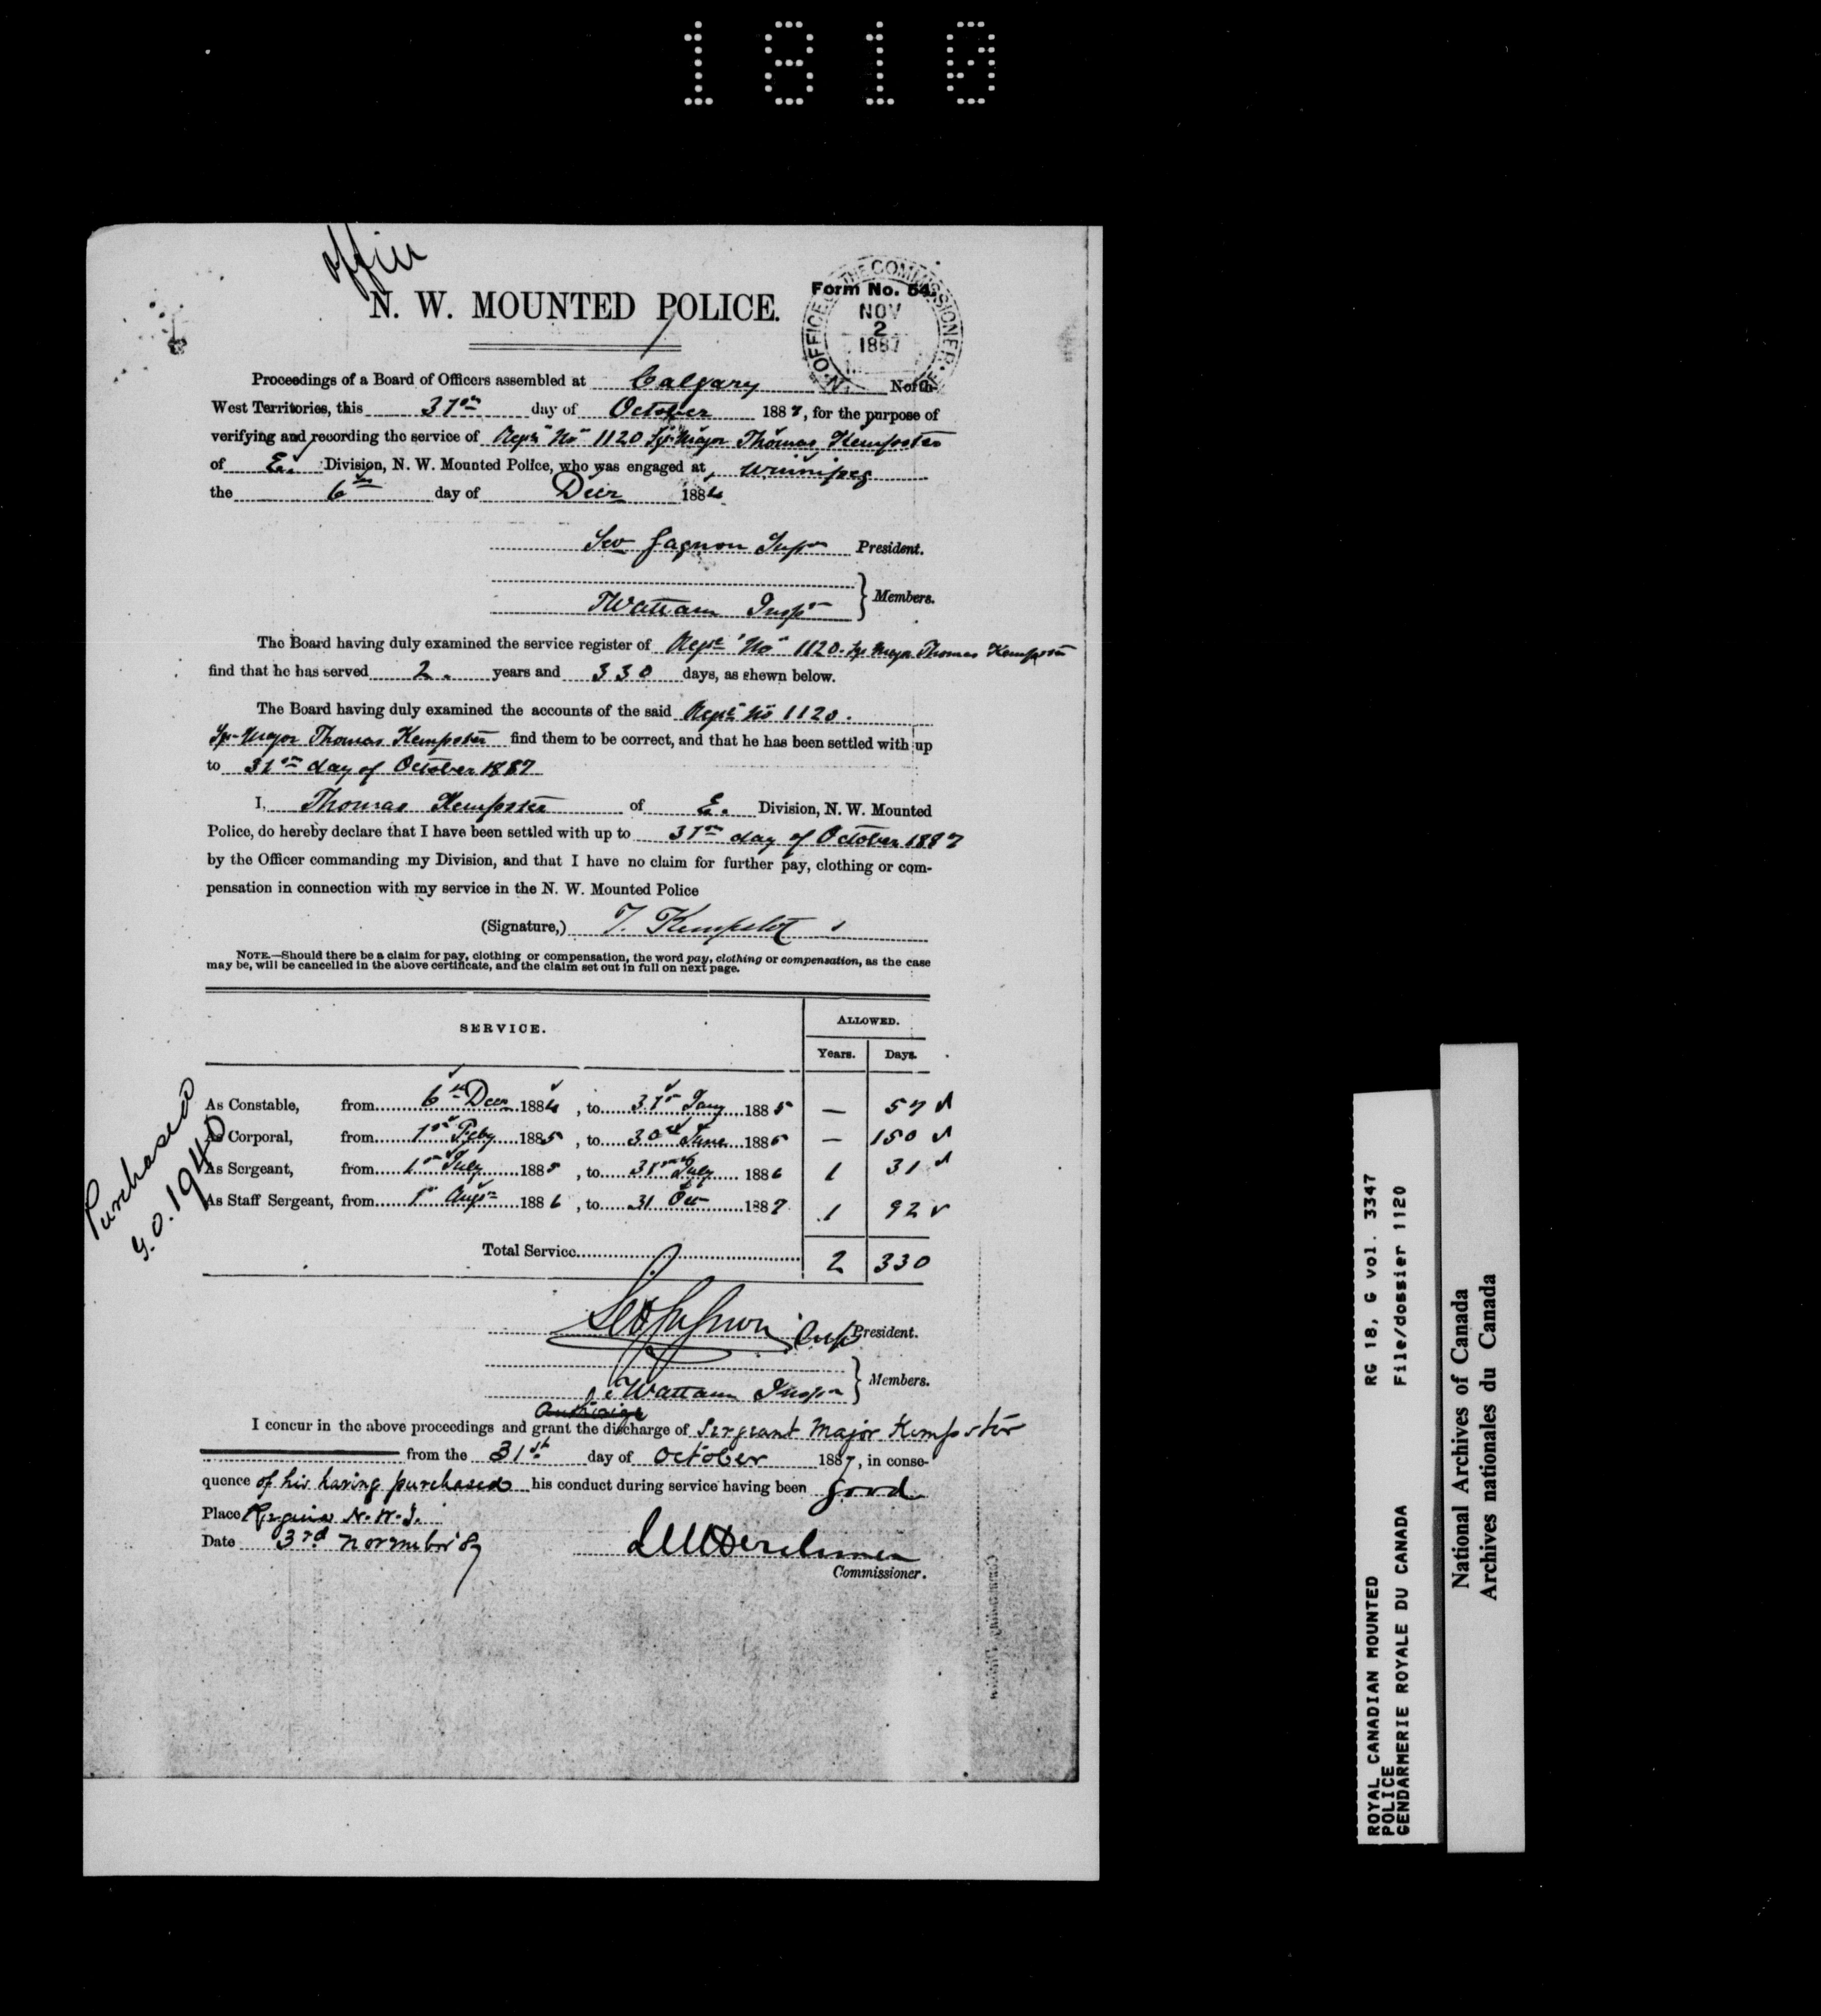 1810
office
N. W. MOUNTED POLICE.
Form No. 54.
OFFICE OF THE COMMISSIONER
NOV
2
1887
Proceedings of a Board of Officers assembled at Calgary North-
West Territories, this 31st day of October 1887, for the purpose of
verifying and recording the service of Regtl No 1120 Sgt Major Thomas Kempster
of E. Division, N. W. Mounted Police, who was engaged at Winnipeg
the 6th day of Decr 1884
Sev Gagnon Supt President.
TWattam Inspr
Members.
The Board having duly examined the service register of Regtl No 1120. Sgt Major Thomas Kempster
find that he has served 2. years and 330 days, as shewn below.
The Board having duly examined the accounts of the said Regtl No 1120.
Sgt Major Thomas Kempster find them to be correct, and that he has been settled with up
to 31st day of October 1887
I, Thomas Kempster of E. Division, N. W. Mounted
Police, do hereby declare that I have been settled with up to 31st day of October 1887
by the Officer commanding my Division, and that I have no claim for further pay, clothing or com-
pensation in connection with my service in the N. W. Mounted Police
(Signature,) T. Kempster
NOTE.—Should there be a claim for pay, clothing or compensation, the word pay, clothing or compensation, as the case
may be, will be cancelled in the above certificate, and the claim set out in full on next page.
SERVICE. ALLOWED.
Years. Days.
As Constable, from 6th Decr 1884, to 31st Jany 1885 — 57
As Corporal, from 1st Feby 1885, to 30th June 1885 — 150
As Sergeant, from 1st July 1885, to 31st July 1886 1 31
As Staff Sergeant, from 1st Augst 1886, to 31 Oct 1887 1 92
Total Service 2 330
Purchased
G.O. 1940
Sev Gagnon Supt President.
TWattam Inspr
Members.
Authorize
I concur in the above proceedings and grant the discharge of Sergeant Major Kempster
from the 31st day of October 1887, in conse-
quence of his having purchased his conduct during service having been good
Place Regina N.W.T.
Date 3rd November 87
LWHerchmer
Commissioner.
ROYAL CANADIAN MOUNTED RG 18, G vol. 3347
POLICE
GENDARMERIE ROYALE DU CANADA File/dossier 1120
National Archives of Canada
Archives nationales du Canada